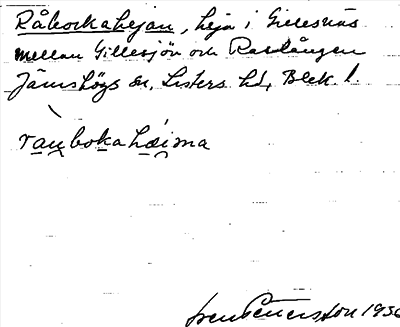 Råbockahejan, heja i Gillesnäs
mellan Gillesjön och Raslången
Jämshögs sn, Listers hd, Blek. l.
raubokahæima
Sven Petersson 1936